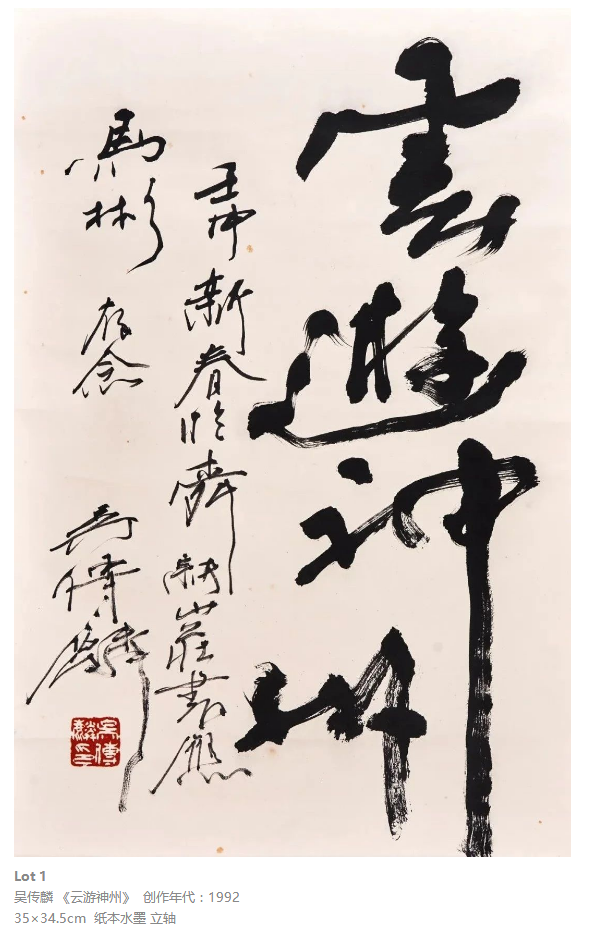 雲遊神州
壬申新春於 山莊書應
馬彬存念
吳傳麟
吳傳麟印
Lot 1
吴传麟 《云游神州》 创作年代：1992
35×34.5cm 纸本水墨 立轴